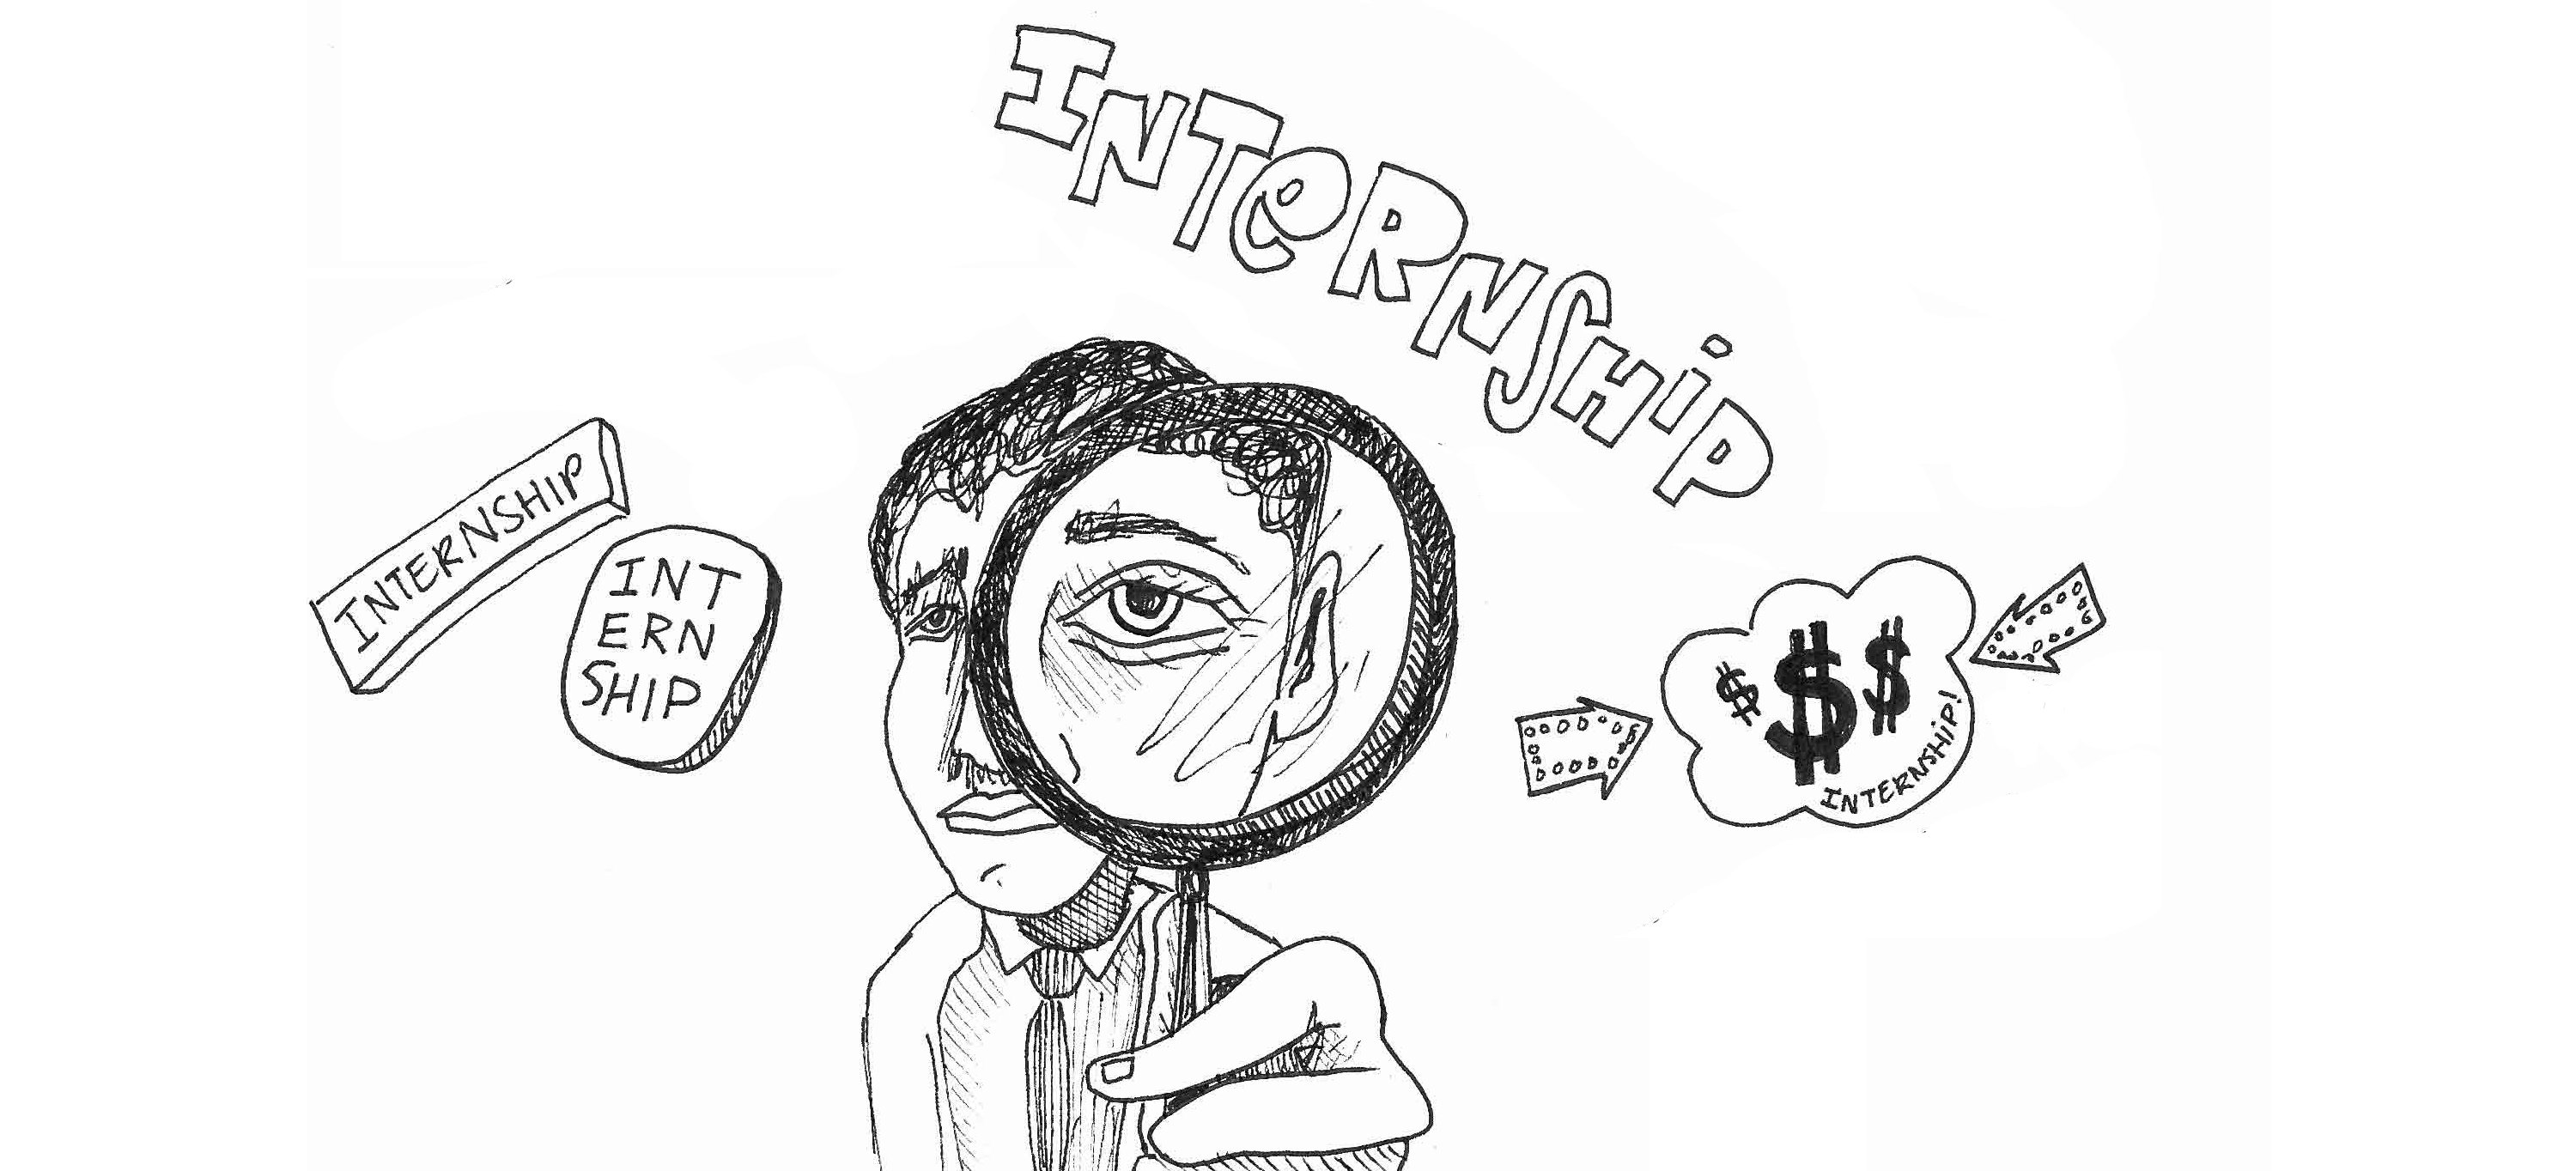 INTeRNSHiP
INTERNSHIP
INT
ERN
SHIP
$ $ $
INTERNSHiP!